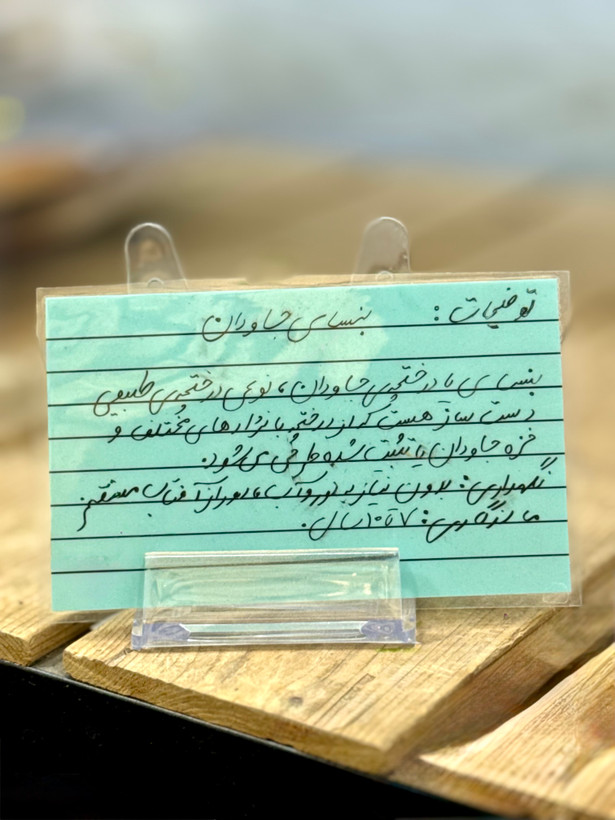 توضیحات: بنسای جاودان
بنسای یا درختچه‌ی جاودان، نوعی درختچه‌ی طبیعی
دست ساز هست که از درختچه با نژادهای مختلف و
خزه جاودان یا تثبیت شده طراحی می‌شود.
نگهداری: بدون نیاز به نور و آب، دور از آفتاب مستقیم
ماندگاری: ۷ تا ۱۰ سال.